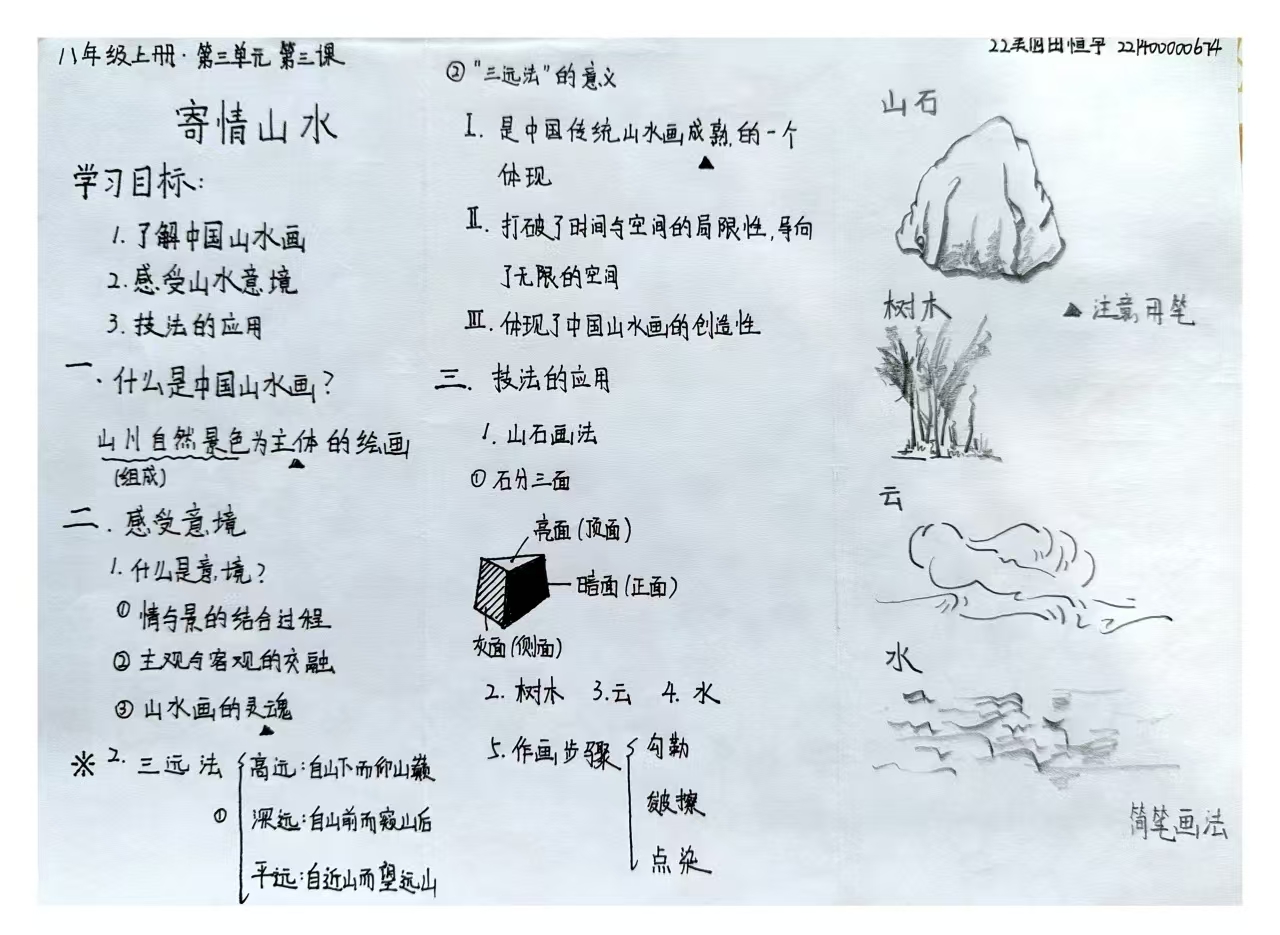 八年级上册·第三单元 第三课
寄情山水
学习目标:
1.了解中国山水画
2.感受山水意境
3.技法的应用
一.什么是中国山水画?
山川自然景色为主体的绘画
(组成)
二.感受意境
1.什么是意境?
①情与景的结合过程
②主观与客观的交融
③山水画的灵魂
※2.三远法
①
高远:自山下而仰山巅
深远:自山前而窥山后
平远:自近山而望远山
②"三远法"的意义
Ⅰ.是中国传统山水画成熟的一个
体现
Ⅱ.打破了时间与空间的局限性,导向
了无限的空间
Ⅲ.体现了中国山水画的创造性
三.技法的应用
1.山石画法
①石分三面
亮面(顶面)
暗面(正面)
灰面(侧面)
2.树木 3.云 4.水
5.作画步骤
勾勒
皴擦
点染
22美 田恒宇 221400000674
山石
树木
▲注意用笔
云
水
简笔画法